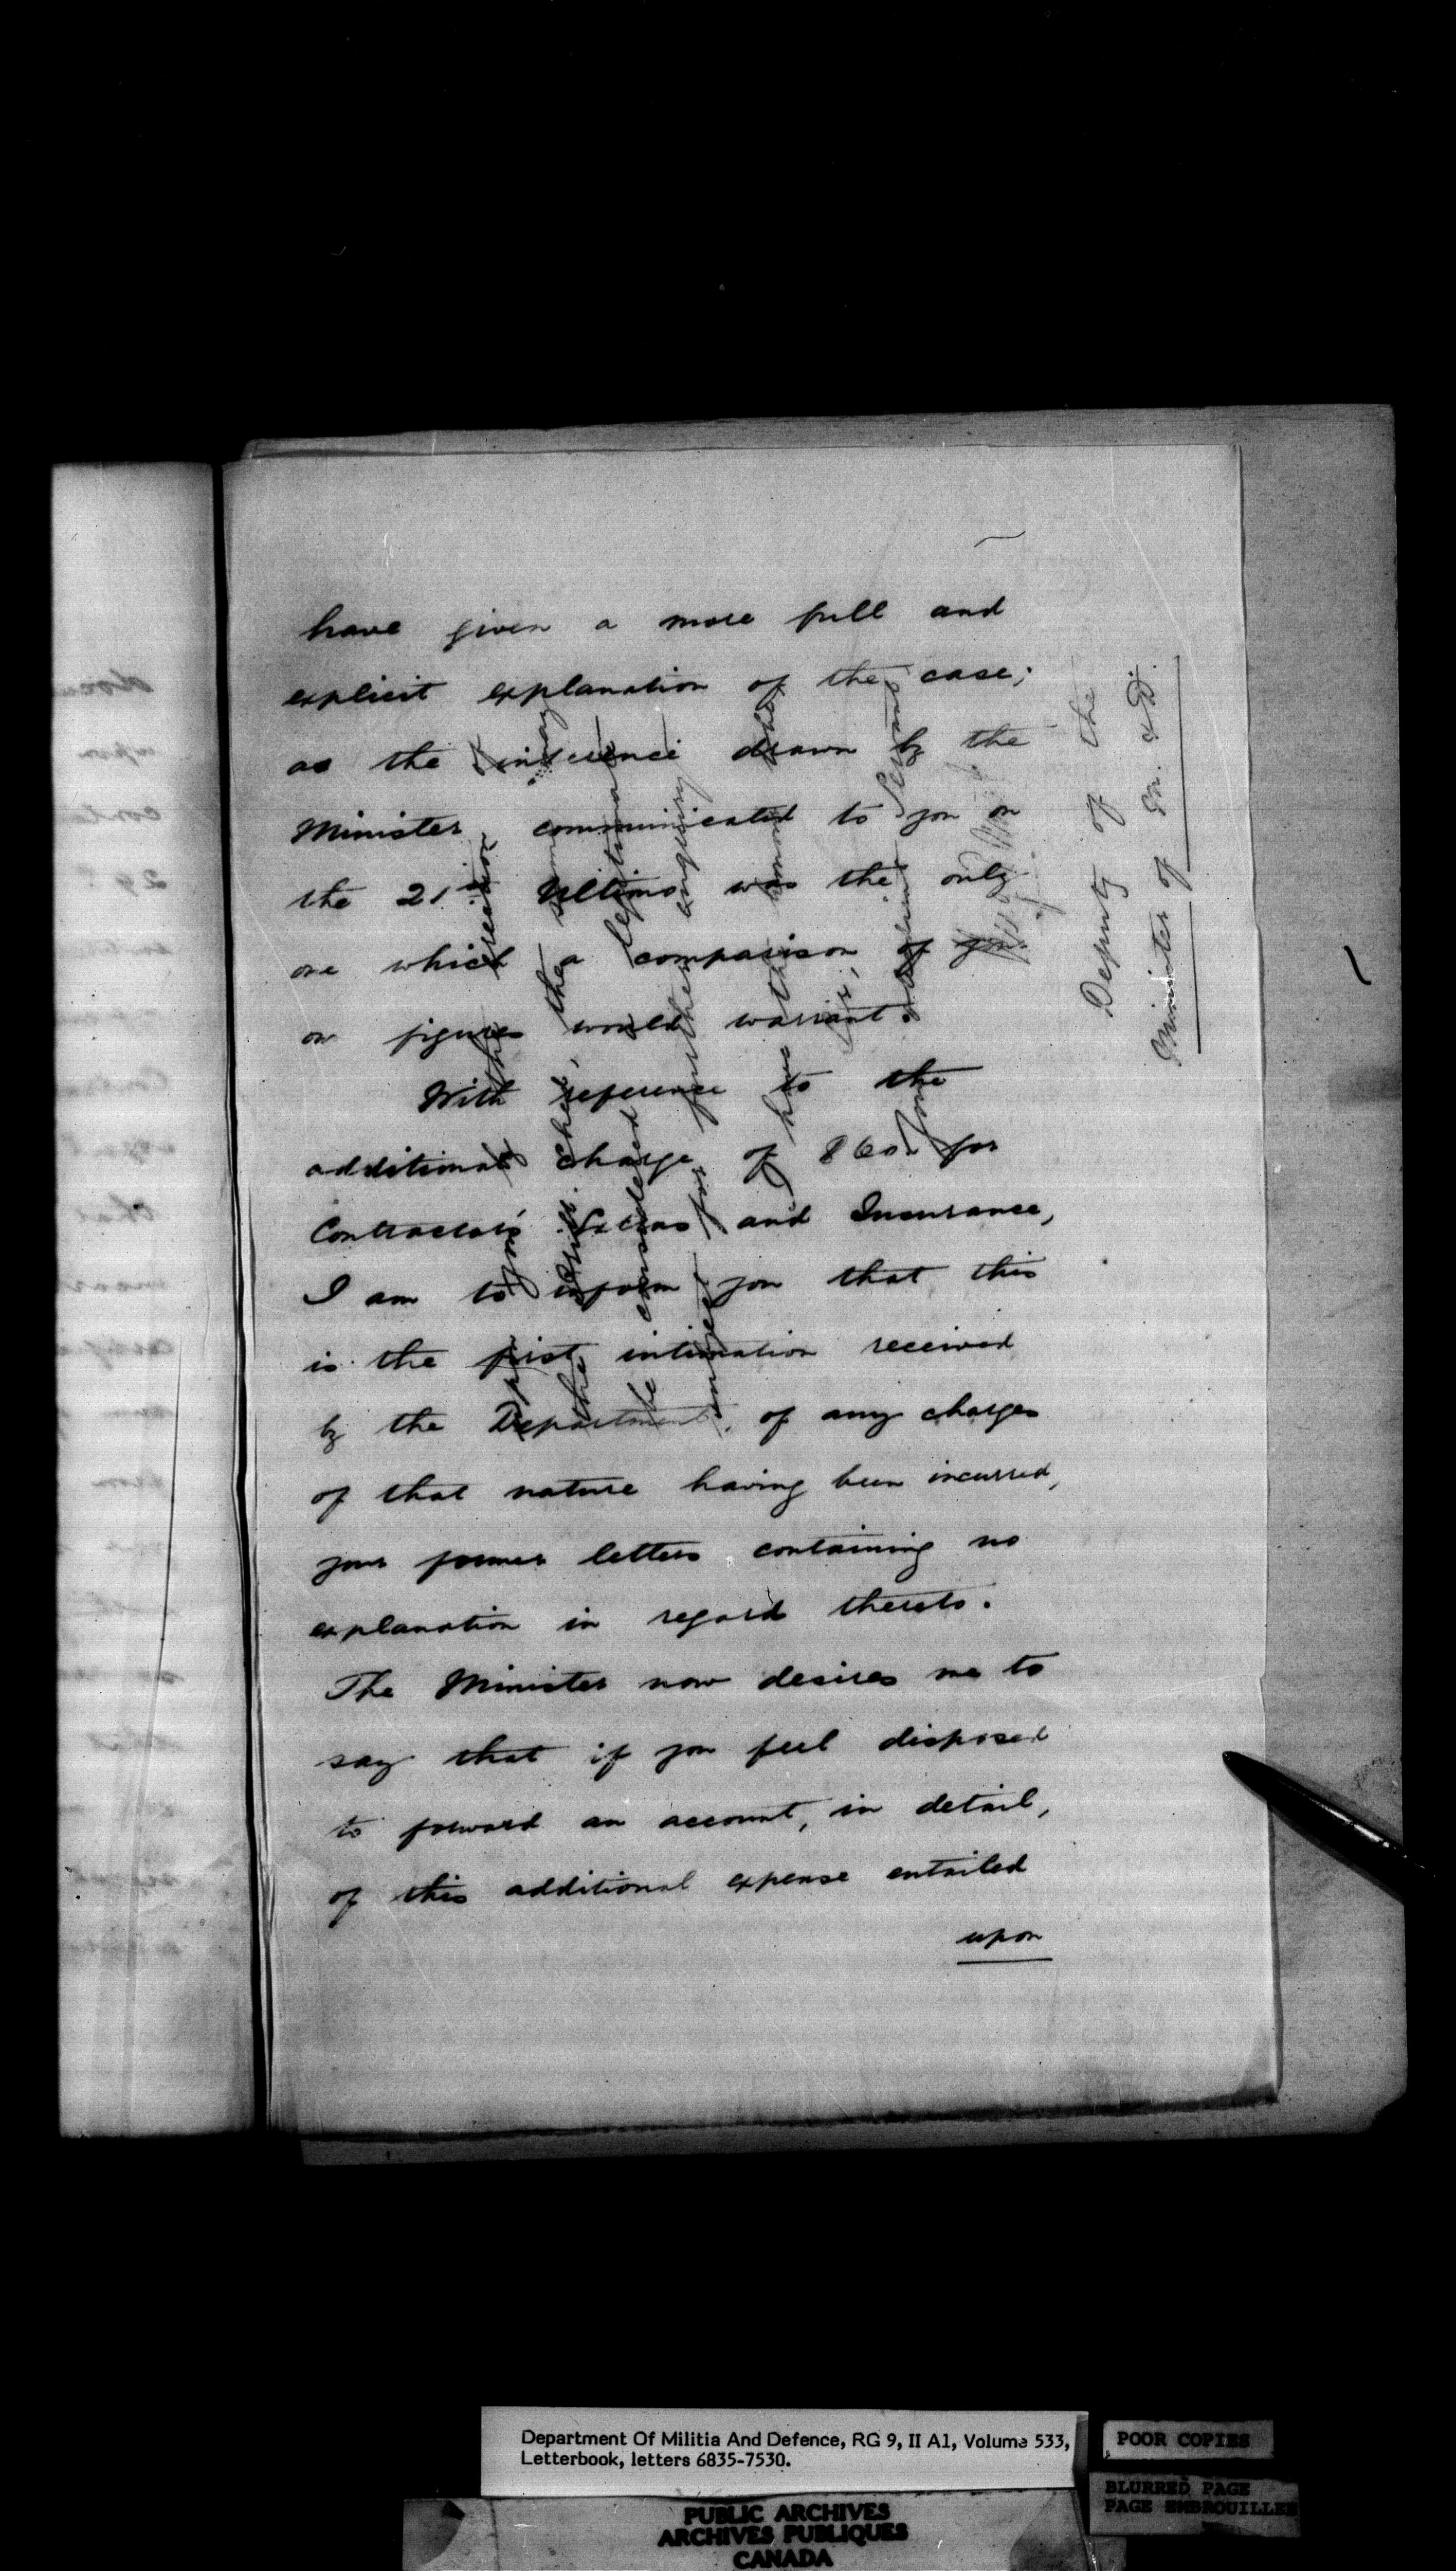 have given a more full and
explicit explanation of the case;
as the inference drawn by the
Minister, communicated to you on
the 21st Ultimo was the only
one which a comparison of you
or figures would warrant.
With reference to the
additional charge of $60. for
Contractor's Extras and Insurance,
I am to inform you that this
is the first intimation received
by the Department, of any charges
of that nature having been incurred,
your former letters containing no
explanation in regard thereto.
The Minister now desires me to
say that if you feel disposed
to forward an account, in detail,
of this additional expense entailed
upon
upon the erection
of your
the Drill Shed, the same may
be considered a legitimate
object for further enquiry
I have the honor to be
Sir,
Your obedient Servant
Deputy of the
Minister of M. & D.
Department Of Militia And Defence, RG 9, II A1, Volume 533,
Letterbook, letters 6835-7530.
POOR COPIES
BLURRED PAGE
PAGE EMBROUILLEE
PUBLIC ARCHIVES
ARCHIVES PUBLIQUES
CANADA